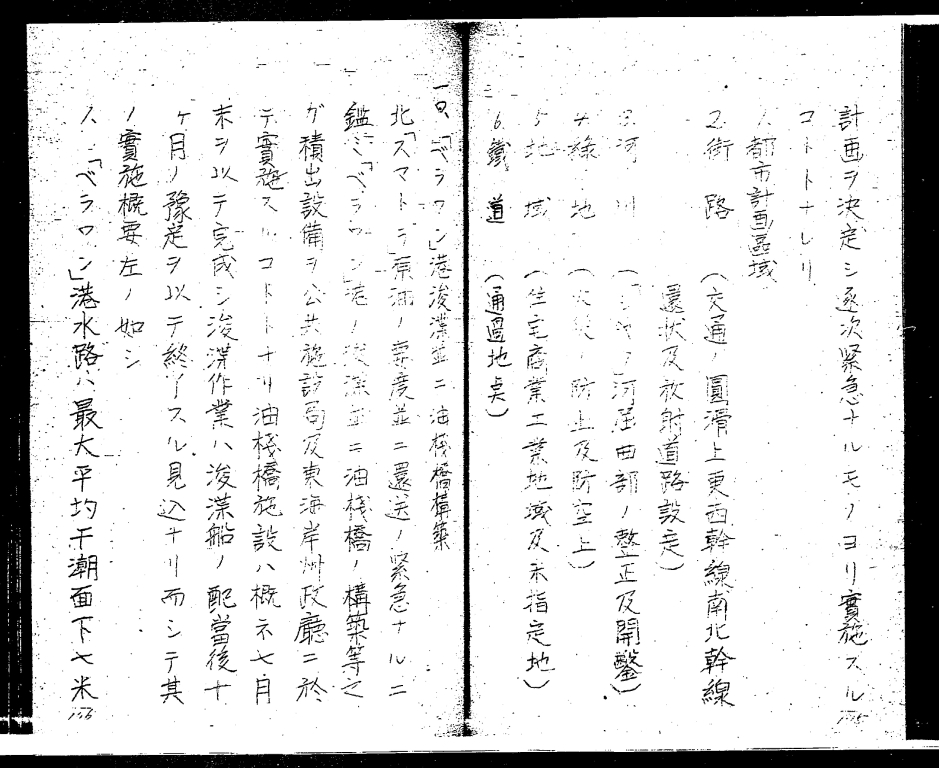 計画ヲ決定シ逐次緊急ナルモノヨリ實施スル
コトトナレリ
1.都市計画區域
2.街路 (交通ノ圓滑上東西幹線南北幹線
還状及放射道路設定)
3.河川 (「シヤク」河屈曲部ノ整正及開鑿)
4.緑地 (火災ノ防止及防空上)
5.地域 (住宅商業工業地域及未指定地)
6.鐵道 (通過地点)
155
一〇、「ベラワン」港浚渫並ニ油棧橋構築
北「スマトラ」原油ノ要度並ニ還送ノ緊急ナルニ
鑑ミ「ベラワン」港ノ浚渫並ニ油棧橋ノ構築等之
ガ積出設備ヲ公共施設局及東海岸州政廳ニ於
テ實施スルコトトナリ油棧橋施設ハ概ネ七月
末ヲ以テ完成シ浚渫作業ハ浚渫船ノ配當後十
ケ月ノ豫定ヲ以テ終了スル見込ナリ而シテ其
ノ實施概要左ノ如シ
1.「ベラワン」港水路ハ最大平均干潮面下七米